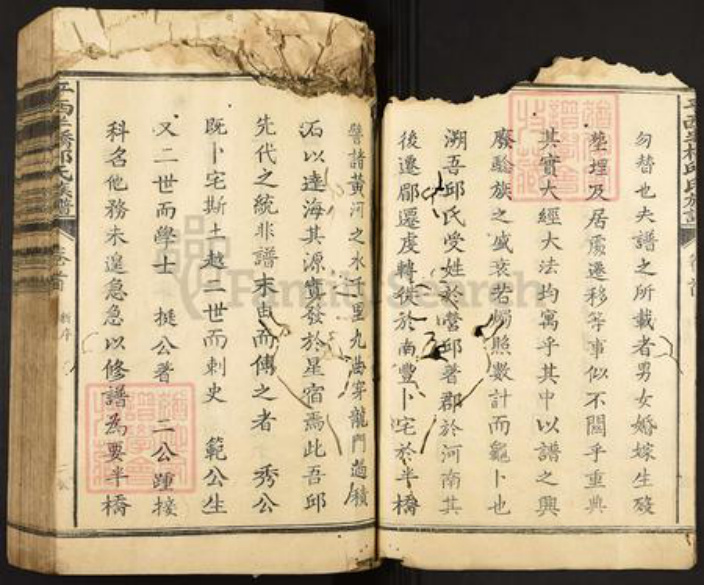 勿替也夫譜之所載者男女婚嫁生殁
塋埋及居處遷移等事似不關乎重典
其實大經大法均寓乎其中以譜之興
廢驗族之盛衰若燭照數計而龜卜也
溯吾邱氏受姓於營邱著郡於河南其
後遷鄖遷虔轉徙於南豐卜宅於半橋
譬諸黃河之水千里九曲穿龍門過積
石以達海其源實發於星宿焉此吾邱
先代之統非譜末由而傳之者 秀公
既卜宅斯土越二世而刺史 範公生
又二世而學士 挺公著 二公踵接
科名他務未遑急急以修譜為要半橋
邱氏族譜
卷首
新序
FamilySearch